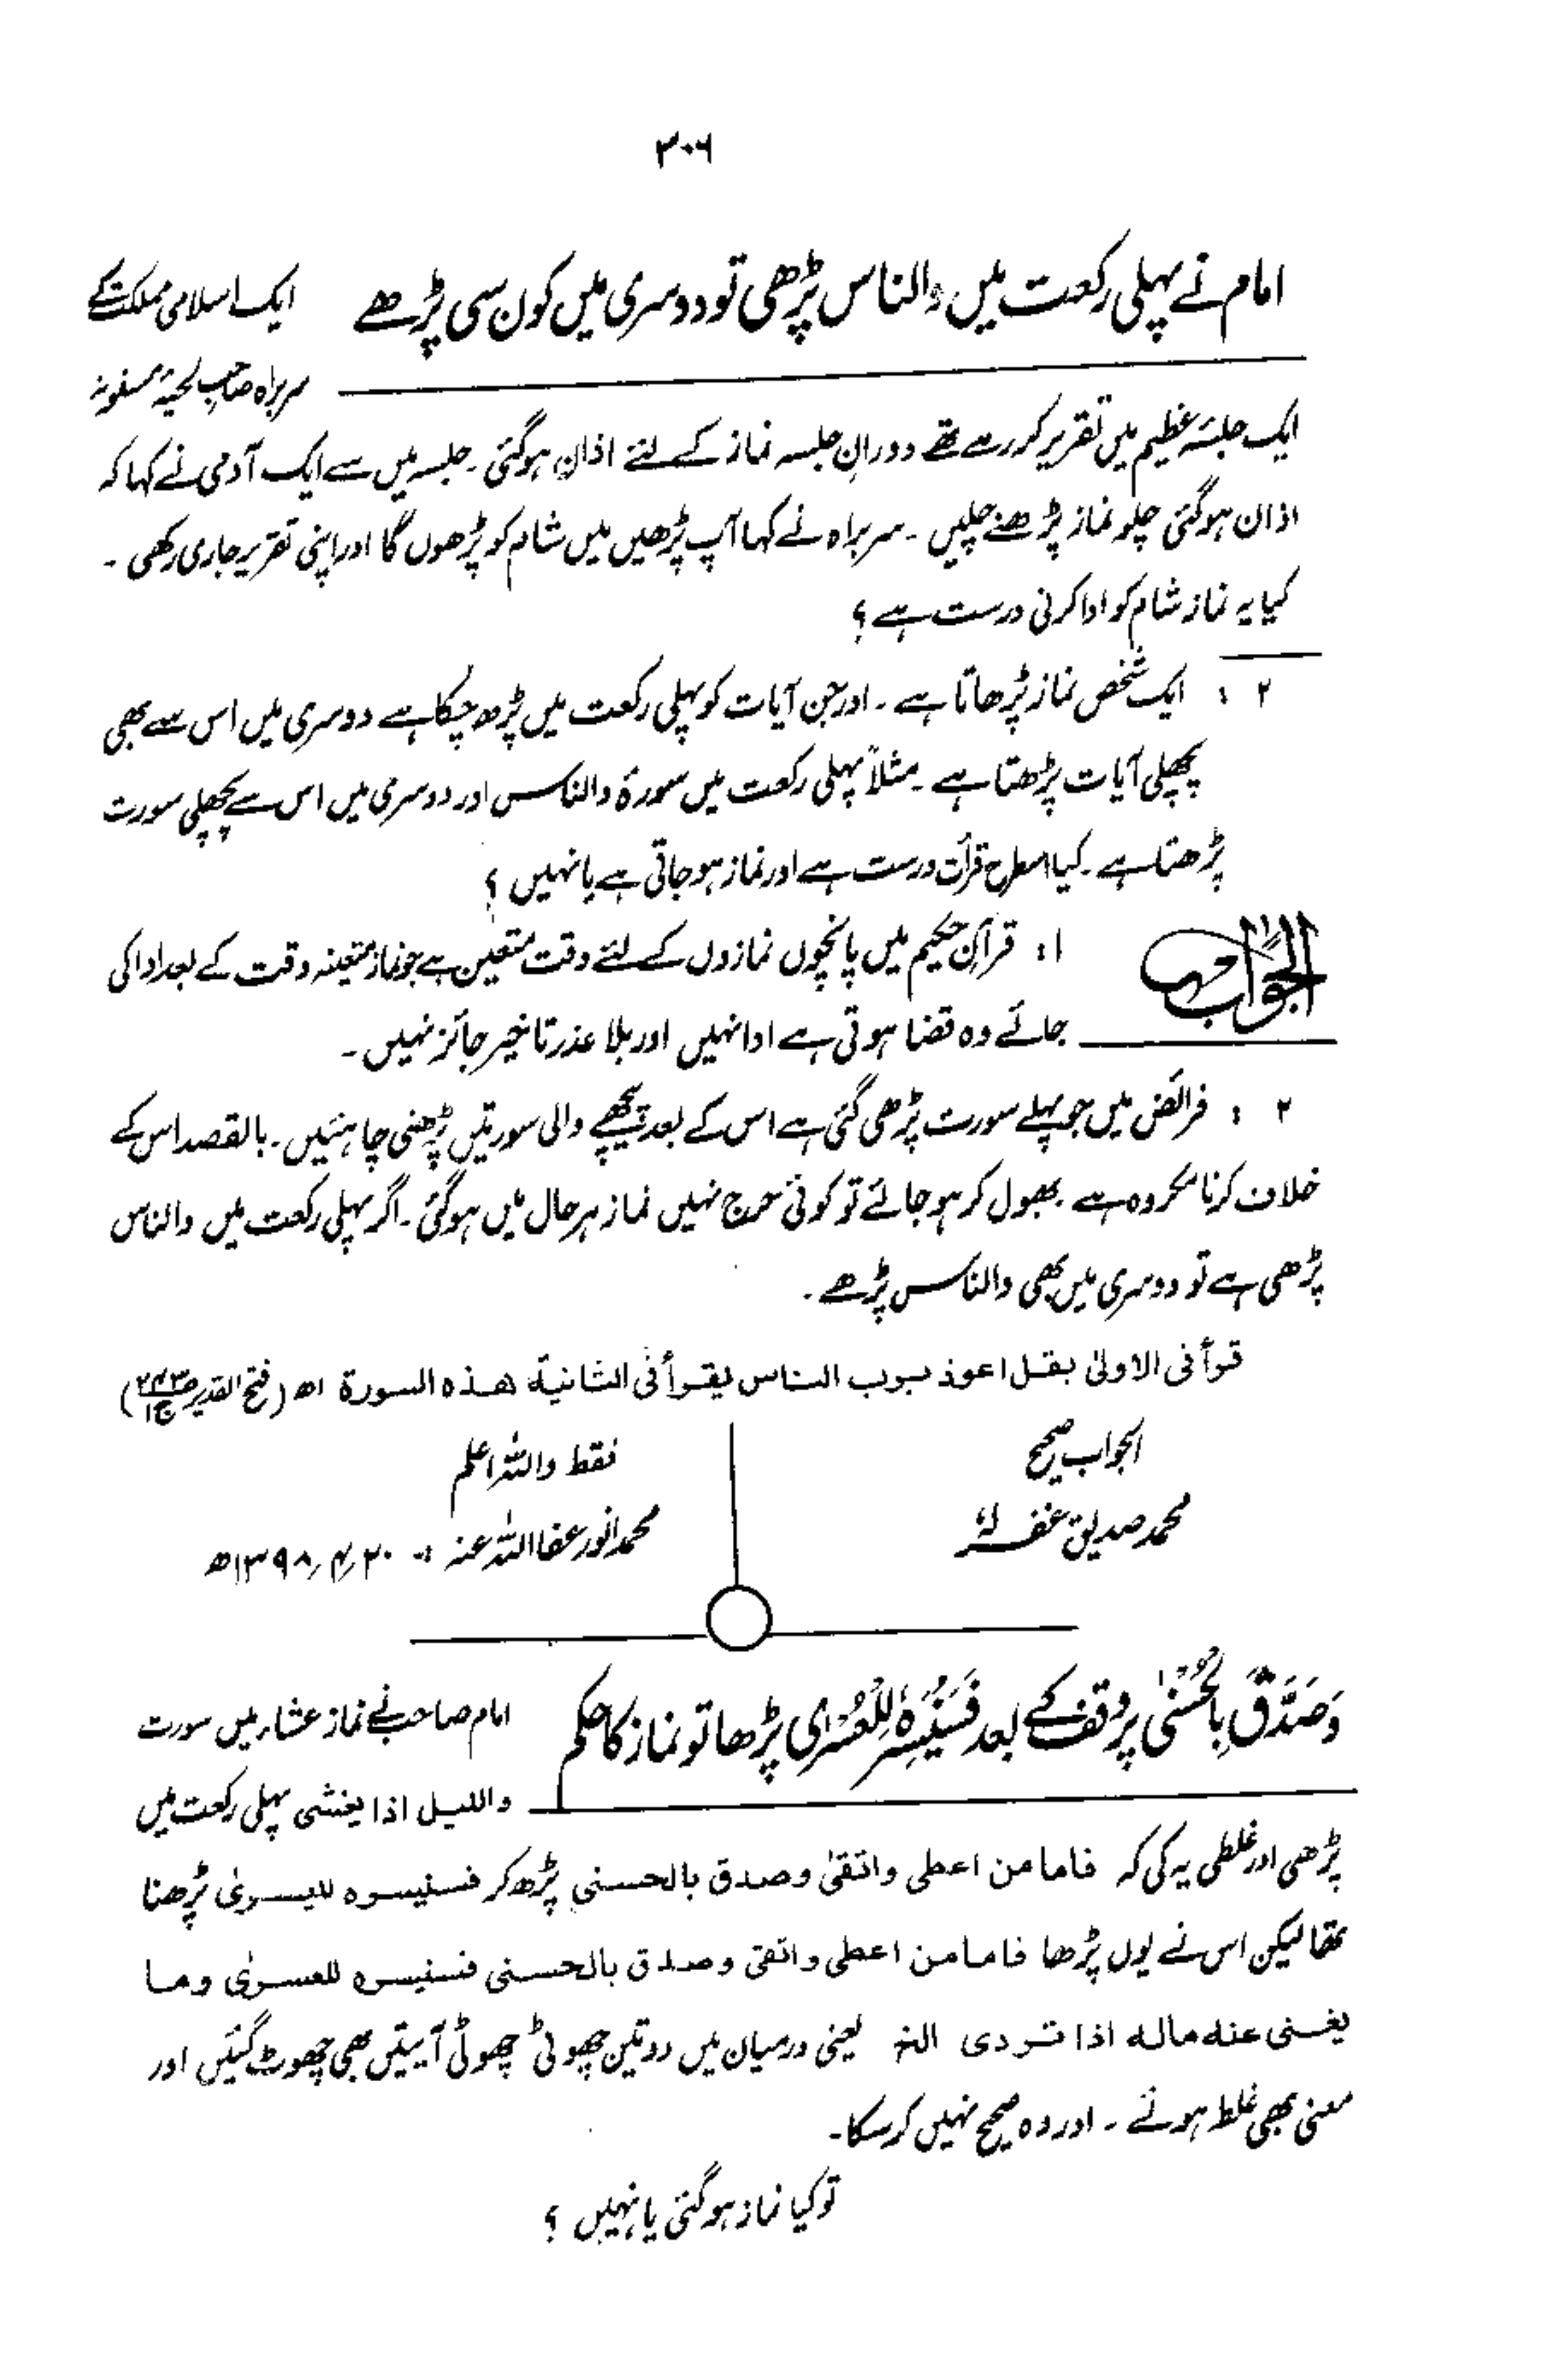 ۳۰۶
امام نے پہلی رکعت میں والناس پڑھی تو دوسری میں کون سی پڑھے
ایک اسلامی مملکت کے
سربراہ صاحب لحیہ مسنونہ
ایک جلسۂ عظیم میں تقریر کر رہے تھے دورانِ جلسہ نماز کے لئے اذان ہوگئی۔ جلسہ میں سے ایک آدمی نے کہا کہ
اذان ہوگئی چلو نماز پڑھنے چلیں۔ سربراہ نے کہا آپ پڑھیں میں شام کو پڑھوں گا اور اپنی تقریر جاری رکھی۔
کیا یہ نماز شام کو ادا کرنی درست ہے؟
۲ : ایک شخص نماز پڑھاتا ہے۔ اور جن آیات کو پہلی رکعت میں پڑھ چکا ہے دوسری میں اس سے بھی
پچھلی آیات پڑھتا ہے۔ مثلاً پہلی رکعت میں سورۃ والناس اور دوسری میں اس سے پچھلی سورت
پڑھتا ہے۔ کیا اسطرح قرأت درست ہے اور نماز ہو جاتی ہے یا نہیں؟
الجواب
۱: قرآن حکیم میں پانچوں نمازوں کے لئے وقت متعین ہے جو نماز متعینہ وقت کے بعد ادا کی
جائے وہ قضا ہوتی ہے ادا نہیں اور بلا عذر تاخیر جائز نہیں۔
۲ : فرائض میں جو پہلے سورت پڑھی گئی ہے اس کے بعد پیچھے والی سورتیں پڑھنی چاہئیں۔ بالقصد اس کے
خلاف کرنا مکروہ ہے بھول کر ہو جائے تو کوئی حرج نہیں نماز ہر حال میں ہوگئی۔ اگر پہلی رکعت میں والناس
پڑھی ہے تو دوسری میں بھی والناس پڑھے۔
قرأ فی الاولیٰ بقل اعوذ برب الناس یقرأ فی الثانیة هذه السورة اھ (فتح القدیر ج۱)
الجواب صحیح
محمد صدیق غفرلہٗ
فقط واللہ اعلم
محمد انور عفا اللہ عنہ ۲۰ ؍ ۴ ؍ ۱۳۹۸ھ
وَصَدَّقَ بِالْحُسْنٰی پر وقف کے بعد فَسَنُیَسِّرُہٗ لِلْعُسْرٰی پڑھا تو نماز کا حکم
امام صاحب نے نماز عشاء میں سورت
واللیل اذا یغشی پہلی رکعت میں
پڑھی اور غلطی یہ کی کہ فاما من اعطی واتقیٰ وصدق بالحسنی پڑھ کر فسنیسره للیسریٰ پڑھنا
تھا لیکن اس نے یوں پڑھا فاما من اعطی واتقی وصدق بالحسنی فسنیسره للعسریٰ وما
یغنی عنه ماله اذا تردی الخ یعنی درمیان میں دو تین چھوٹی چھوٹی آیتیں بھی چھوٹ گئیں اور
معنی بھی غلط ہوئے۔ اور وہ صحیح نہیں کر سکا۔
تو کیا نماز ہوگئی یا نہیں؟